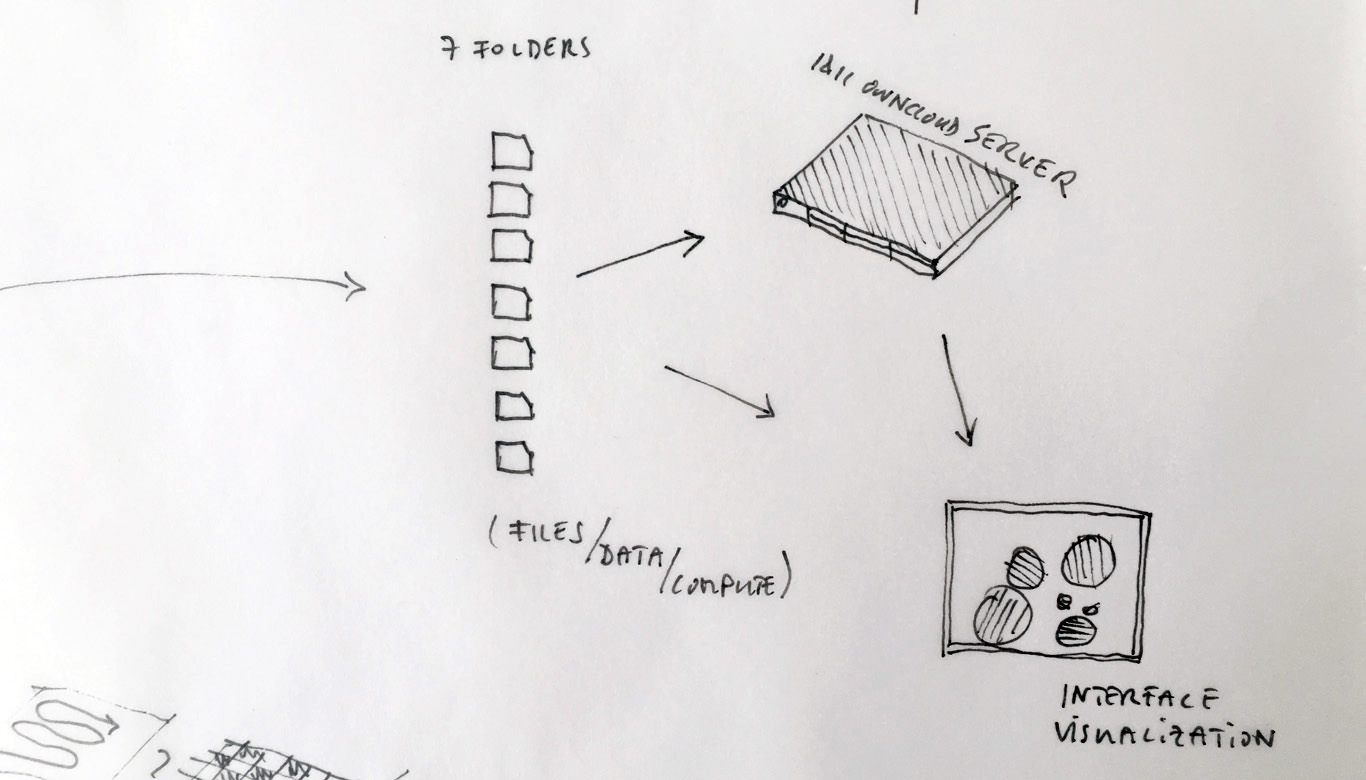 7 FOLDERS
OWNCLOUD SERVER
(FILES/DATA/COMPUTE)
INTERFACE
VISUALIZATION